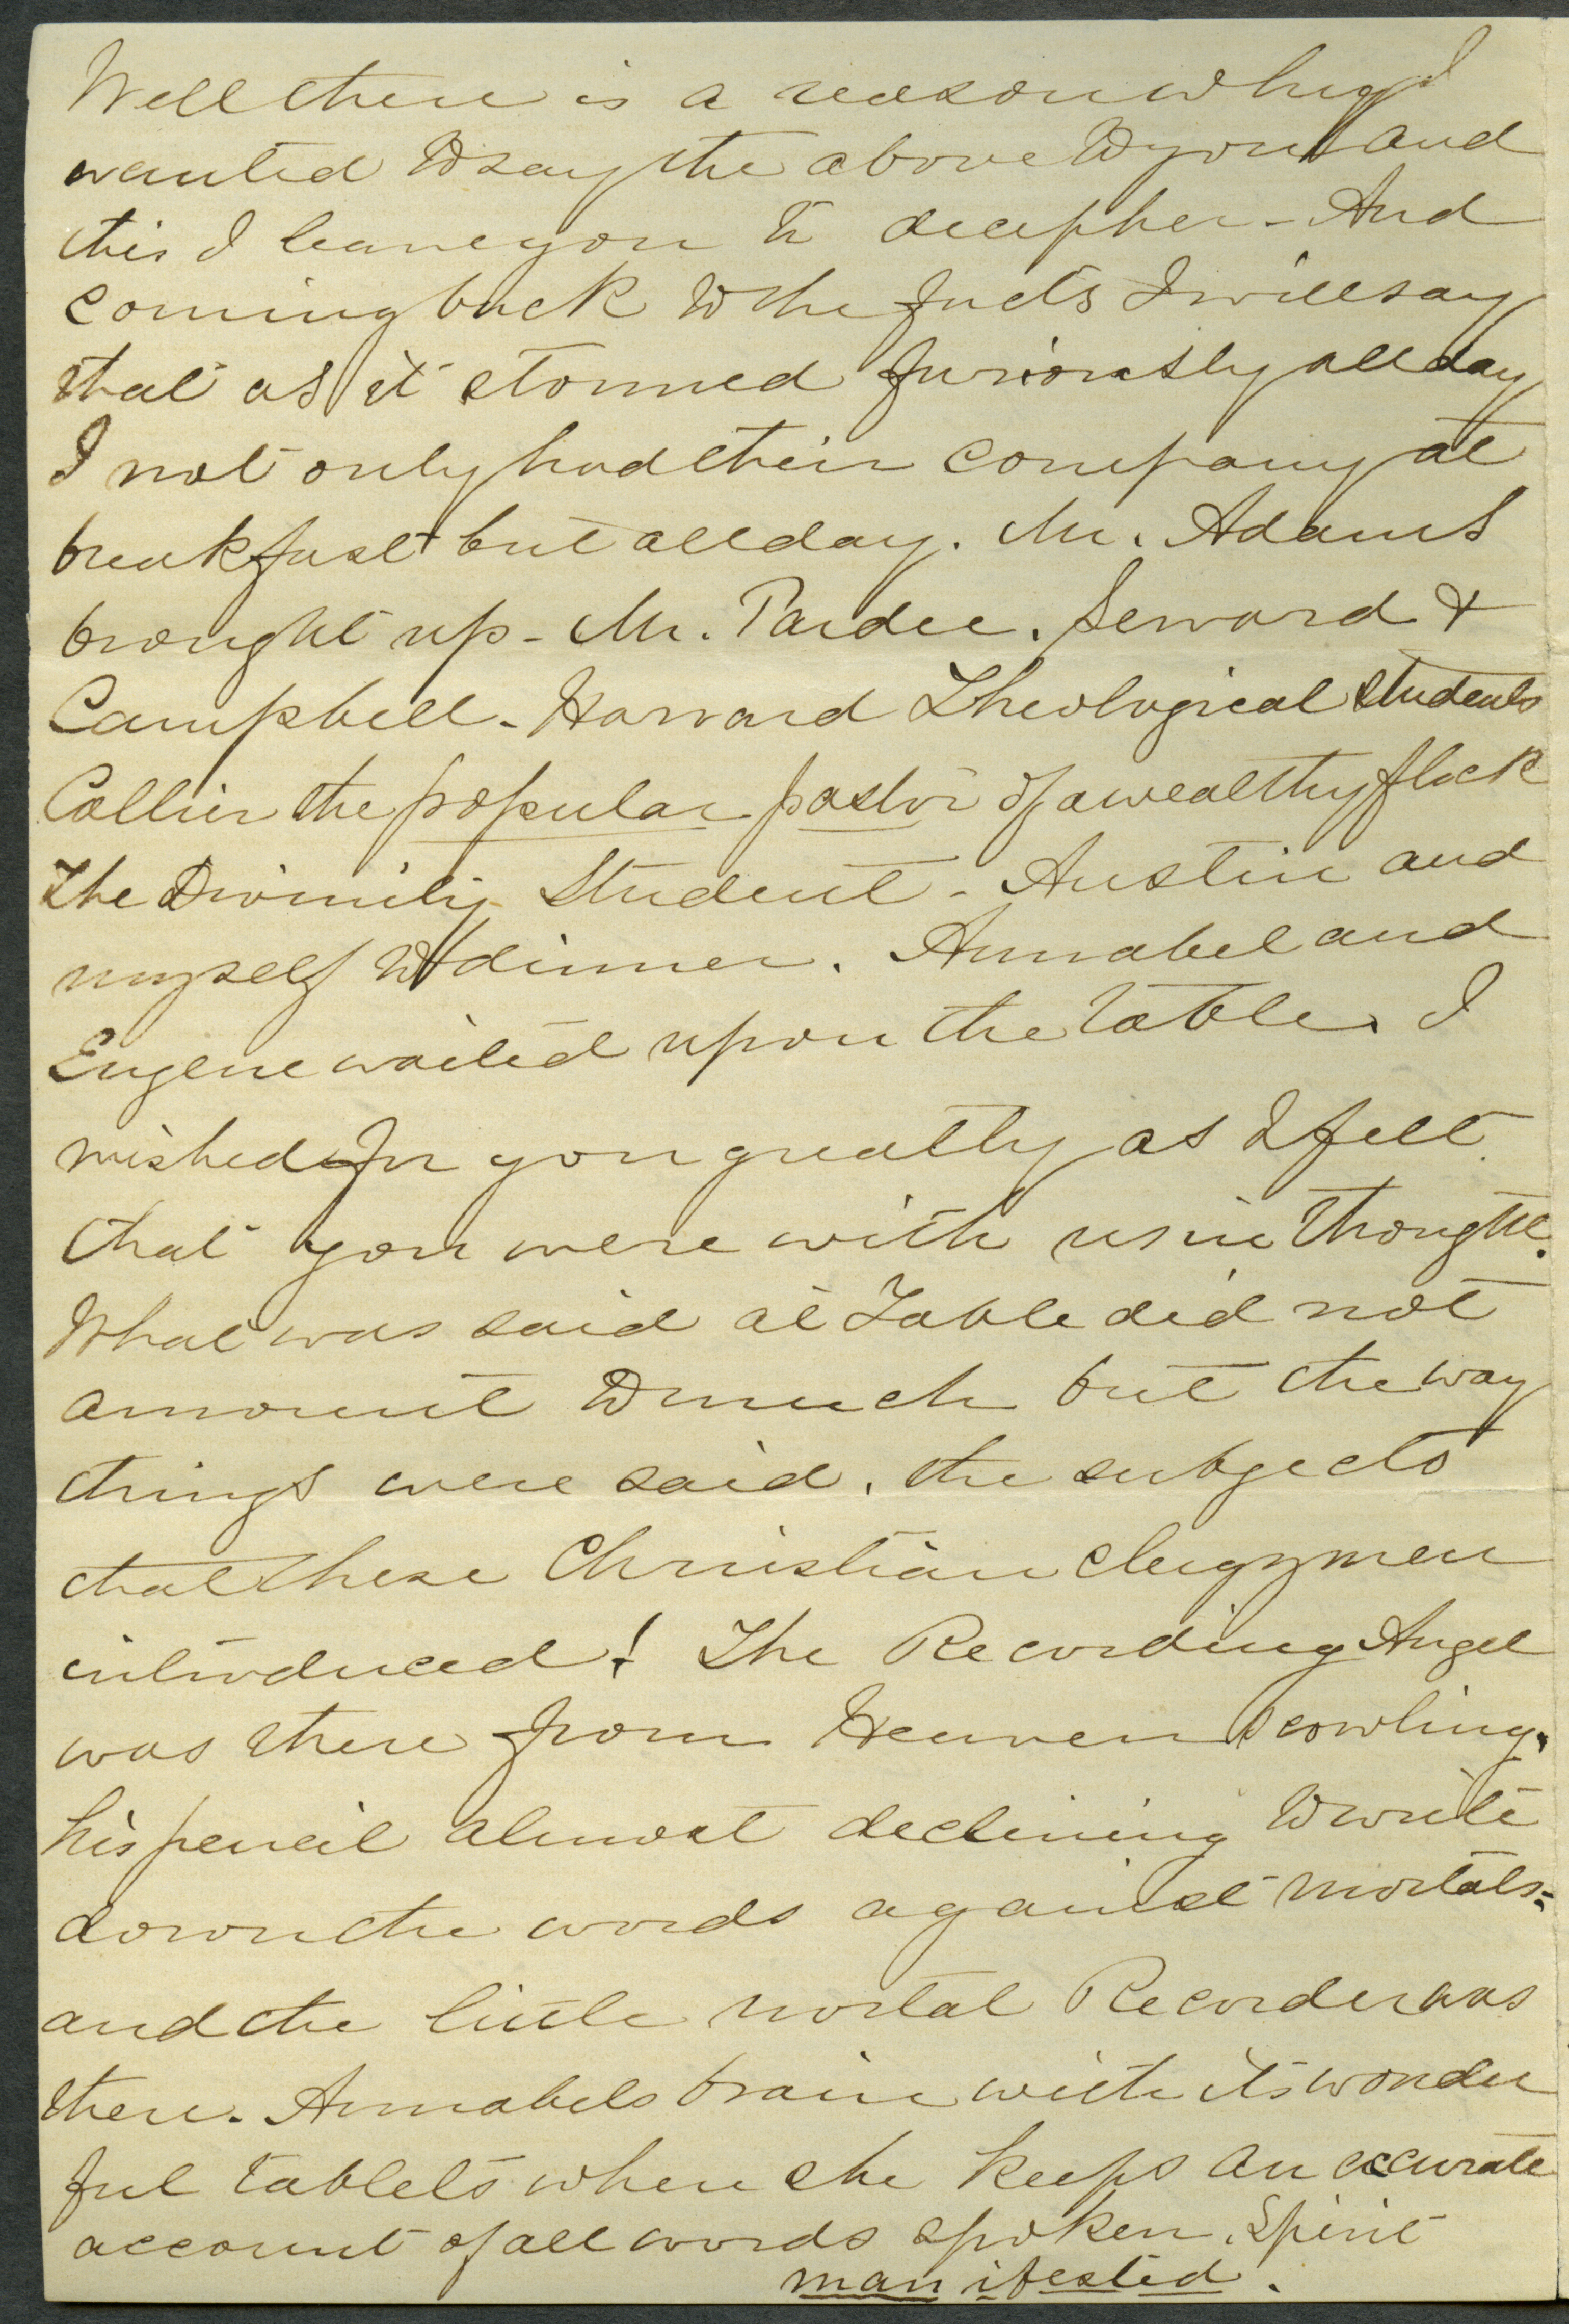 Well there is a reason why I
wanted to say the above to you and
this I leave you to decipher - And
coming back to the facts I will say
that as it stormed furiously all day
I not only had their company at
breakfast but all day. Mr. Adams
brought up - Mr. Pardee. Seward &
Campbell - Harvard Theological students
Collier the popular pastor of a wealthy flock
The Divinity Student - Austin and
myself to dinner. Annabel and
Eugene waited upon the table. I
wished for you greatly as I felt
that you were with us in thought.
What was said at Table did not
amount to much but the way
things were said, the subjects
that these Christian clergymen
introduced! The Recording Angel
was there from Heaven scowling,
his pencil almost declining to write
down the words against mortals;
and the little mortal Recorder was
there. Annabels brain with its wonder
ful tablets where she keeps an accurate
account of all words spoken. Spirit
manifested.